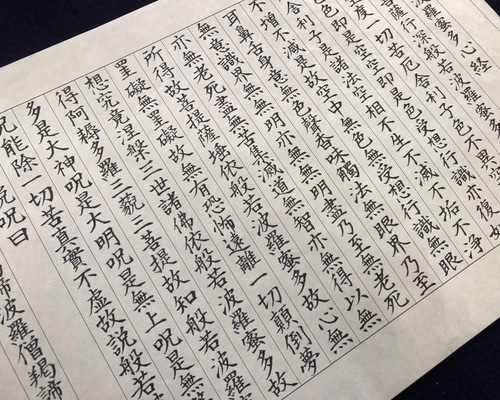 波羅蜜多心経
薩行深般若波羅蜜多
空度一切苦厄舍利子色不異
色即是空空即是色受想行識亦復如
舍利子是諸法空相不生不滅不垢不淨
不增不減是故空中無色無受想行識無眼
耳鼻舌身意無色聲香味觸法無眼界乃至
無意識界無無明亦無無明盡乃至無老死
亦無老死盡無苦集滅道無智亦無得以無
所得故菩提薩埵依般若波羅蜜多故心無
罣礙無罣礙故無有恐怖遠離一切顛倒夢
想究竟涅槃三世諸佛依般若波羅蜜多故
得阿耨多羅三藐三菩提故知般若波羅
多是大神呪是大明呪是無上呪是無
呪能除一切苦真實不虛故說般若
說呪曰
諦波羅僧羯諦